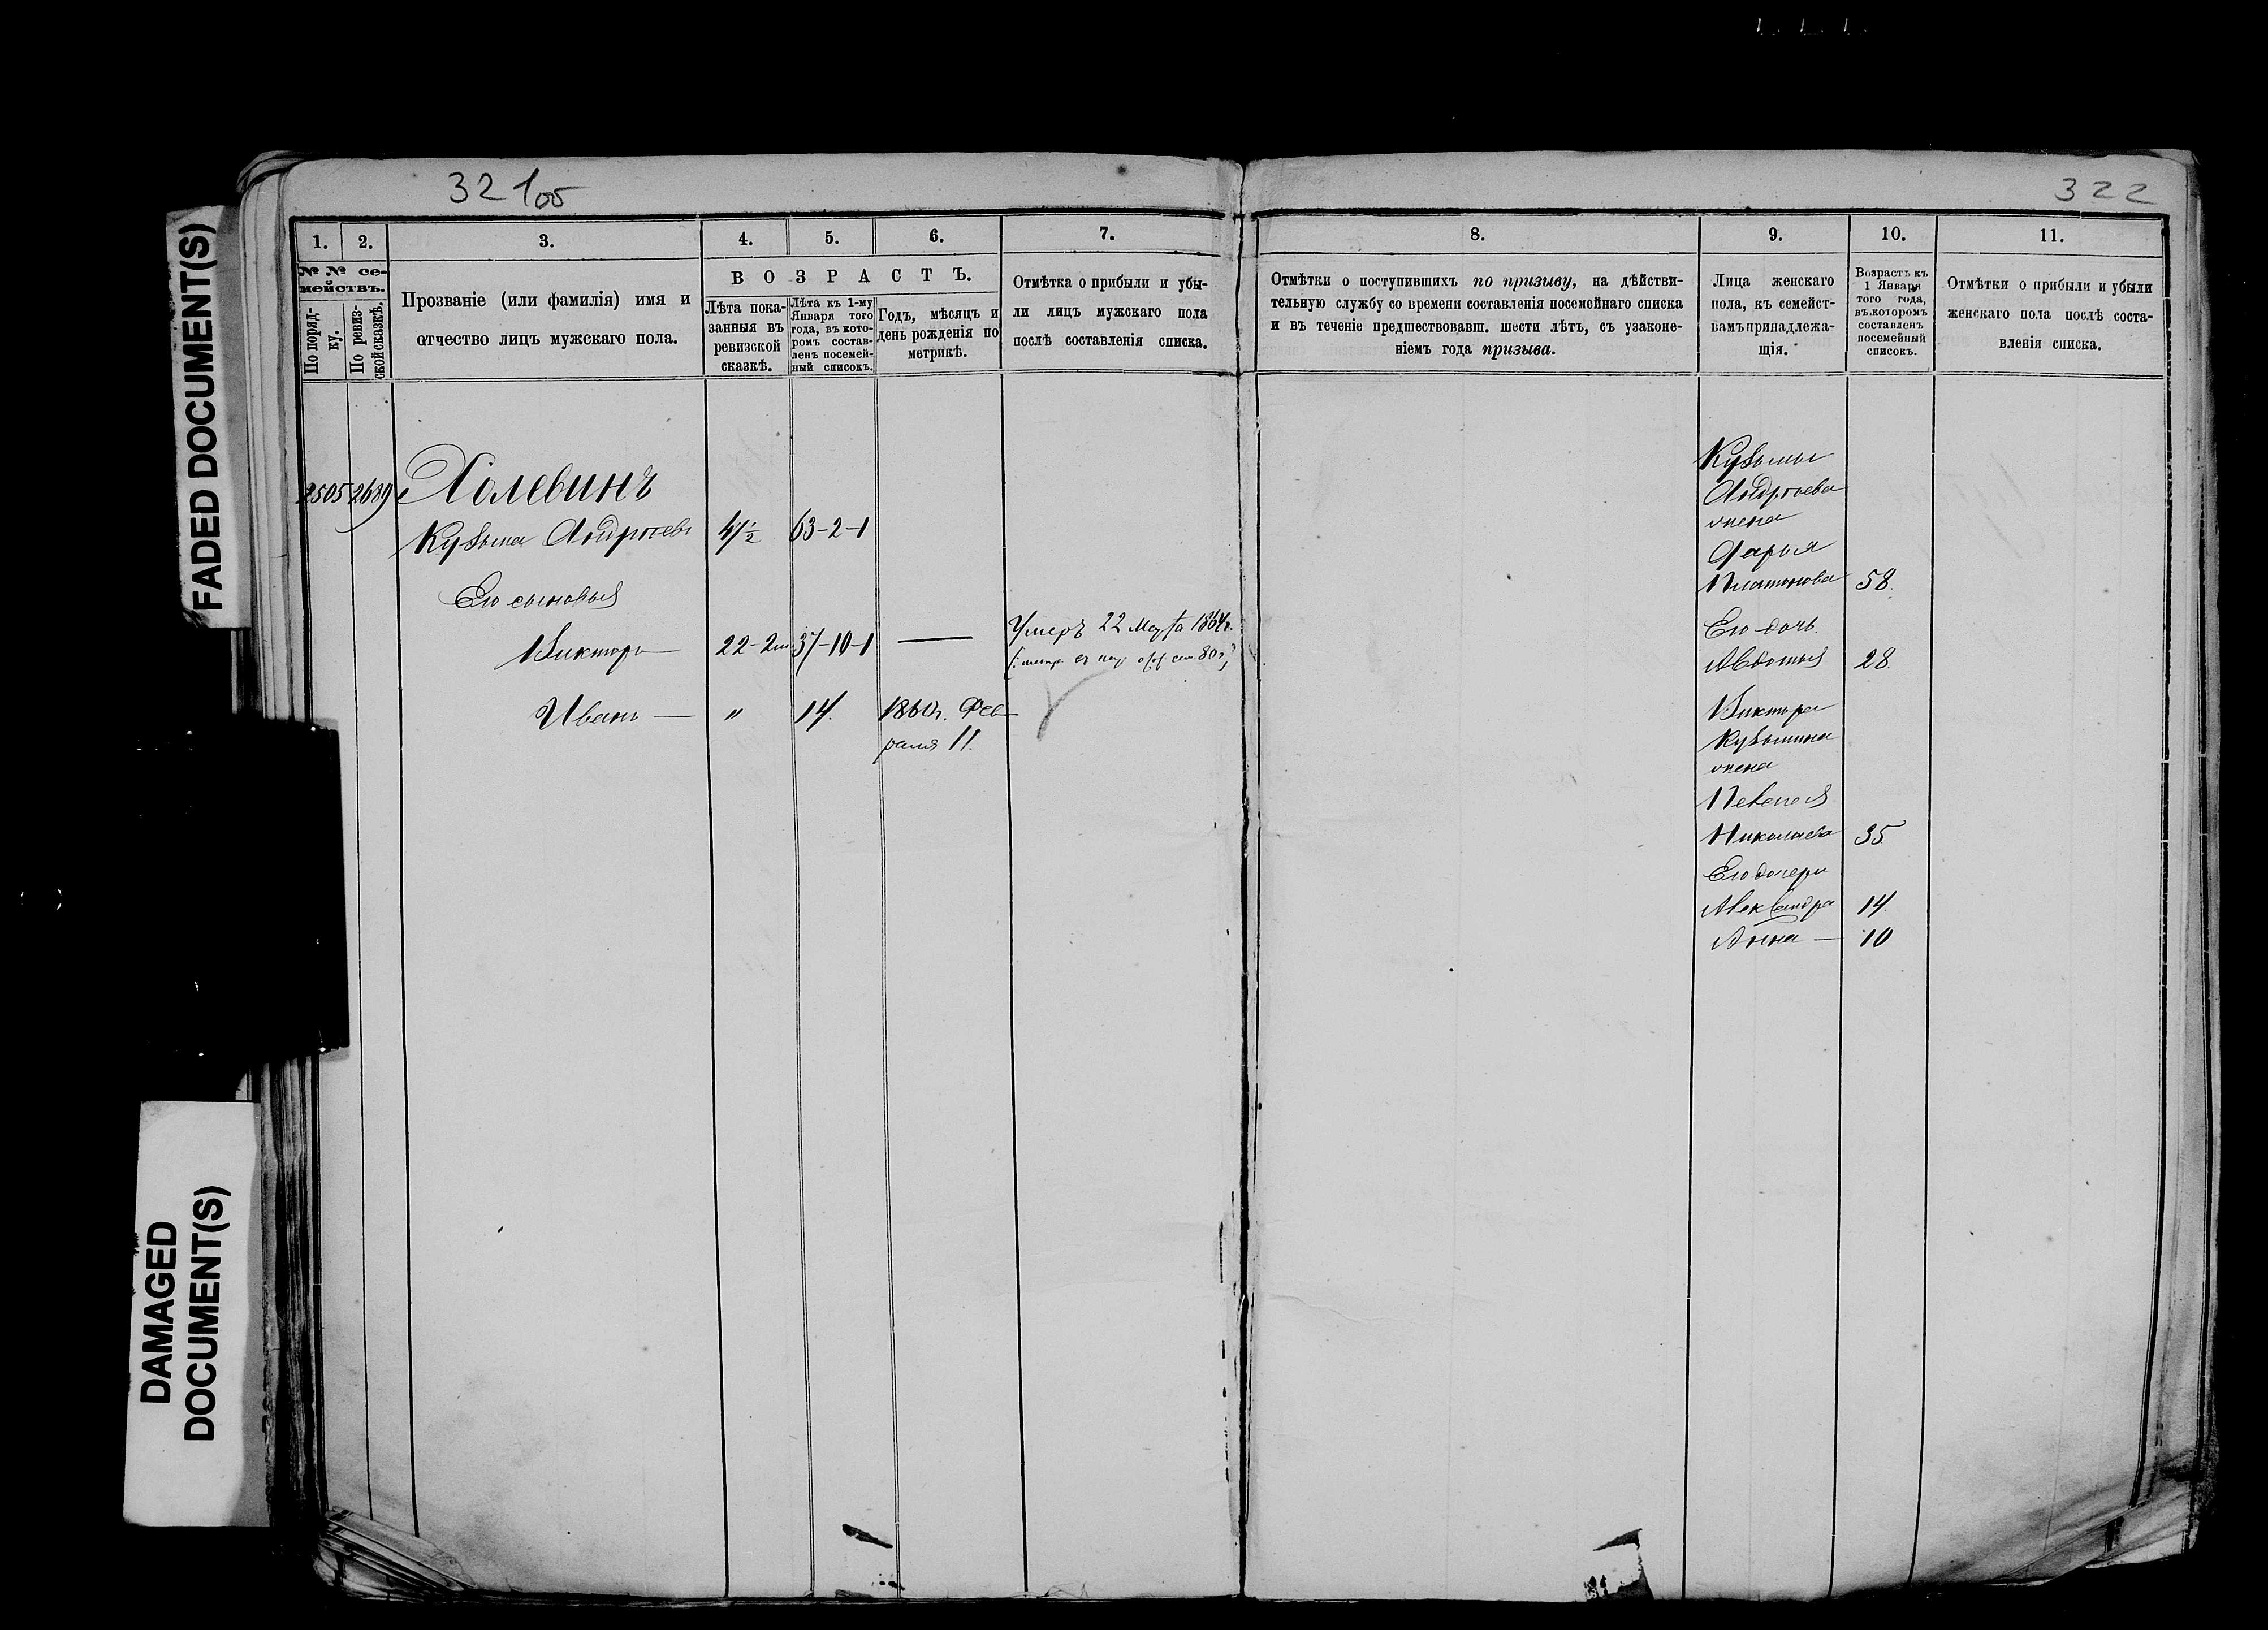 FADED DOCUMENT(S)
DAMAGED
DOCUMENT(S)
321об
322
1.
2.
3.
4.
5.
6.
7.
8.
9.
10.
11.
№ № се-
мействъ.
По поряд-
ку.
По ревиз-
ской сказкѣ.
Прозваніе (или фамилія) имя и
отчество лицъ мужскаго пола.
ВОЗРАСТЪ.
Лѣта пока-
занныя въ
ревизской
сказкѣ.
Лѣта къ 1-му
Января того
года, въ кото-
ромъ состав-
ленъ посемей-
ный списокъ.
Годъ, мѣсяцъ и
день рожденія по
метрикѣ.
Отмѣтка о прибыли и убы-
ли лицъ мужскаго пола
послѣ составленія списка.
Отмѣтки о поступившихъ по призыву, на дѣйстви-
тельную службу со времени составленія посемейнаго списка
и въ теченіе предшествовавш. шести лѣтъ, съ узаконе-
ніемъ года призыва.
Лица женскаго
пола, къ семейст-
вамъ принадлежа-
щія.
Возрастъ къ
1 Января
того года,
въ которомъ
составленъ
посемейный
списокъ.
Отмѣтки о прибыли и убыли
женскаго пола послѣ соста-
вленія списка.
2505 2689 Холевинъ
Кузьма Андреевъ 47½ 63-2-1
Его сыновья
Викторъ — 22-2м 37-10-1 —
Умеръ 22 Марта
Иванъ — " 14. 1860г. Фев-
раля 11.
Кузьмы
Андреева
жена
Дарья
Платонова 58.
Его дочь
Авдотья 28.
Виктора
Кузьмина
жена
Николаева 35
Его дочери
Александра 14.
Анна — 10